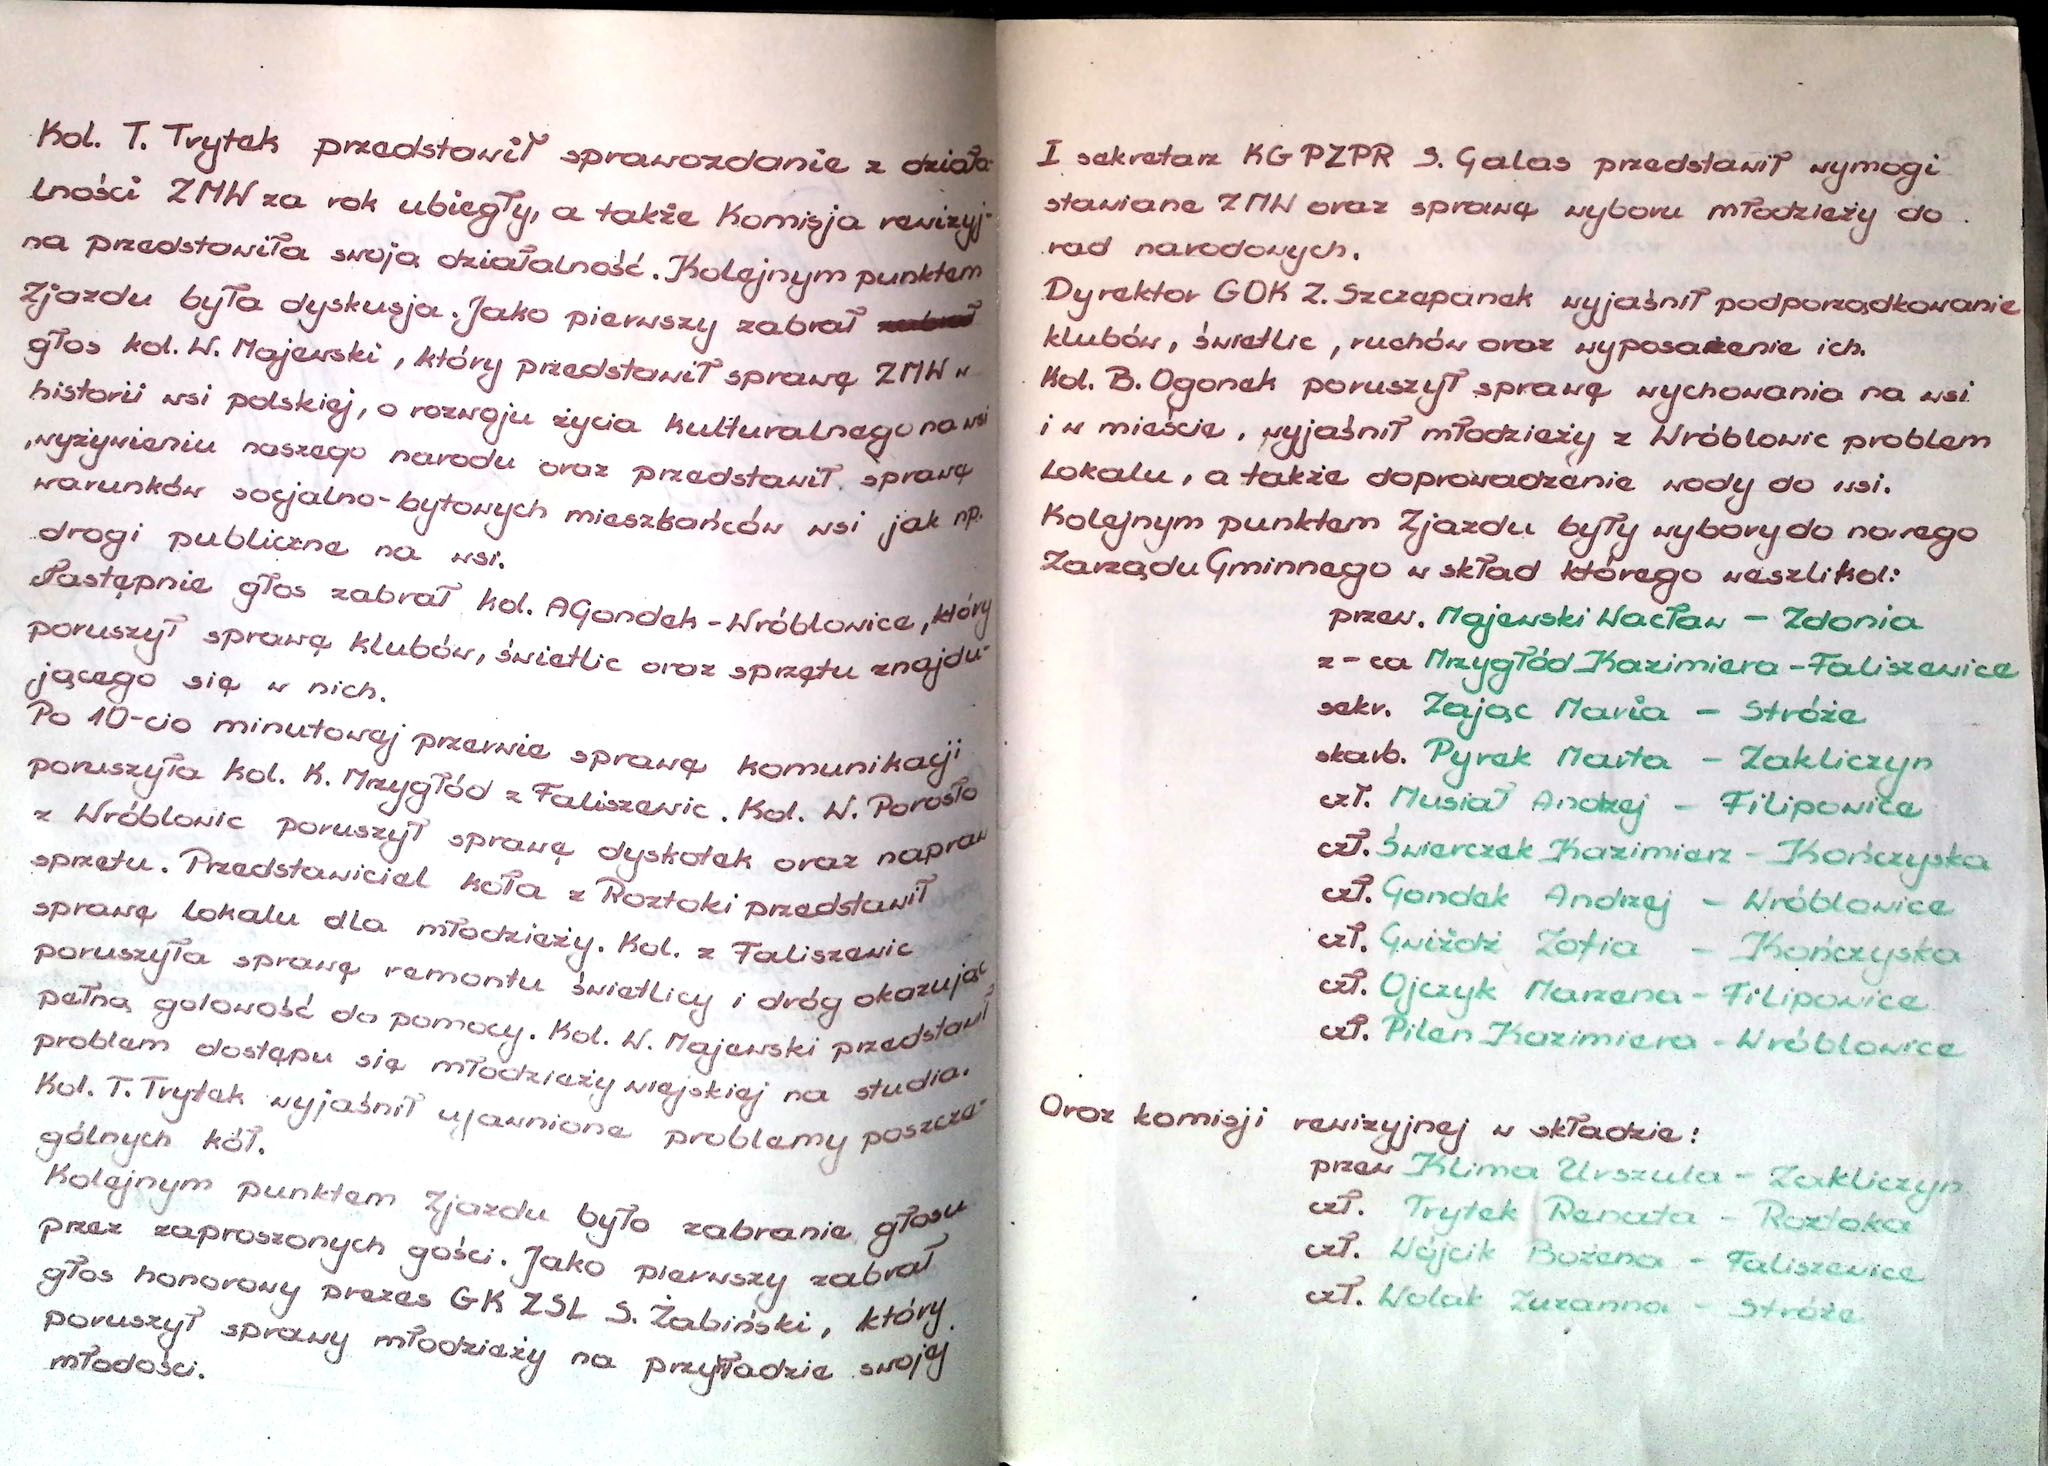 Kol. T. Trytek przedstawił sprawozdanie z działa-
lności ZMW za rok ubiegły, a także Komisja rewizyj-
na przedstawiła swoją działalność. Kolejnym punktem
Zjazdu była dyskusja. Jako pierwszy zabrał
głos kol. W. Majewski, który przedstawił sprawę ZMW w
historii wsi polskiej, o rozwoju życia kulturalnego na wsi
, wyżywieniu naszego narodu oraz przedstawił sprawę
warunków socjalno-bytowych mieszkańców wsi jak np.
drogi publiczne na wsi.
Następnie głos zabrał kol. A Gondek - Wróblowice, który
poruszył sprawę klubów, świetlic oraz sprzętu znajdu-
jącego się w nich.
Po 10-cio minutowej przerwie sprawę komunikacji
poruszyła kol. K. Mrzygłód z Faliszewic. Kol. W. Porosło
z Wróblowic poruszył sprawę dyskotek oraz napraw
sprzętu. Przedstawiciel koła z Roztoki przedstawił
sprawę lokalu dla młodzieży. Kol. z Faliszewic
poruszyła sprawę remontu świetlicy i dróg okazując
pełną gotowość do pomocy. Kol. W. Majewski przedstawił
problem dostępu się młodzieży wiejskiej na studia.
Kol. T. Trytek wyjaśnił ujawnione problemy poszcze-
gólnych kół.
Kolejnym punktem Zjazdu było zabranie głosu
przez zaproszonych gości. Jako pierwszy zabrał
głos honorowy prezes GK ZSL S. Żabiński, który
poruszył sprawy młodzieży na przykładzie swojej
młodości.
I sekretarz KG PZPR S. Galas przedstawił wymogi
stawiane ZMW oraz sprawę wyboru młodzieży do
rad narodowych.
Dyrektor GOK Z. Szczepanek wyjaśnił podporządkowanie
klubów, świetlic, ruchów oraz wyposażenie ich.
Kol. B. Ogonek poruszył sprawę wychowania na wsi
i w mieście, wyjaśnił młodzieży z Wróblowic problem
lokalu, a także doprowadzenie wody do wsi.
Kolejnym punktem Zjazdu były wybory do nowego
Zarządu Gminnego w skład którego weszli kol:
przew. Majewski Wacław - Zdonia
z-ca Mrzygłód Kazimiera - Faliszewice
sekr. Zając Maria - Stróże
skarb. Pyrek Marta - Zakliczyn
czł. Musiał Andrzej - Filipowice
czł. Świerczek Kazimierz - Kończyska
czł. Gondek Andrzej - Wróblowice
czł. Gwiżdż Zofia - Kończyska
czł. Ojczyk Marzena - Filipowice
czł. Pilen Kazimiera - Wróblowice
Oraz komisji rewizyjnej w składzie:
przew Klima Urszula - Zakliczyn
czł. Trytek Renata - Roztoka
czł. Wójcik Bożena - Faliszewice
czł. Wolak Zuzanna - Stróże